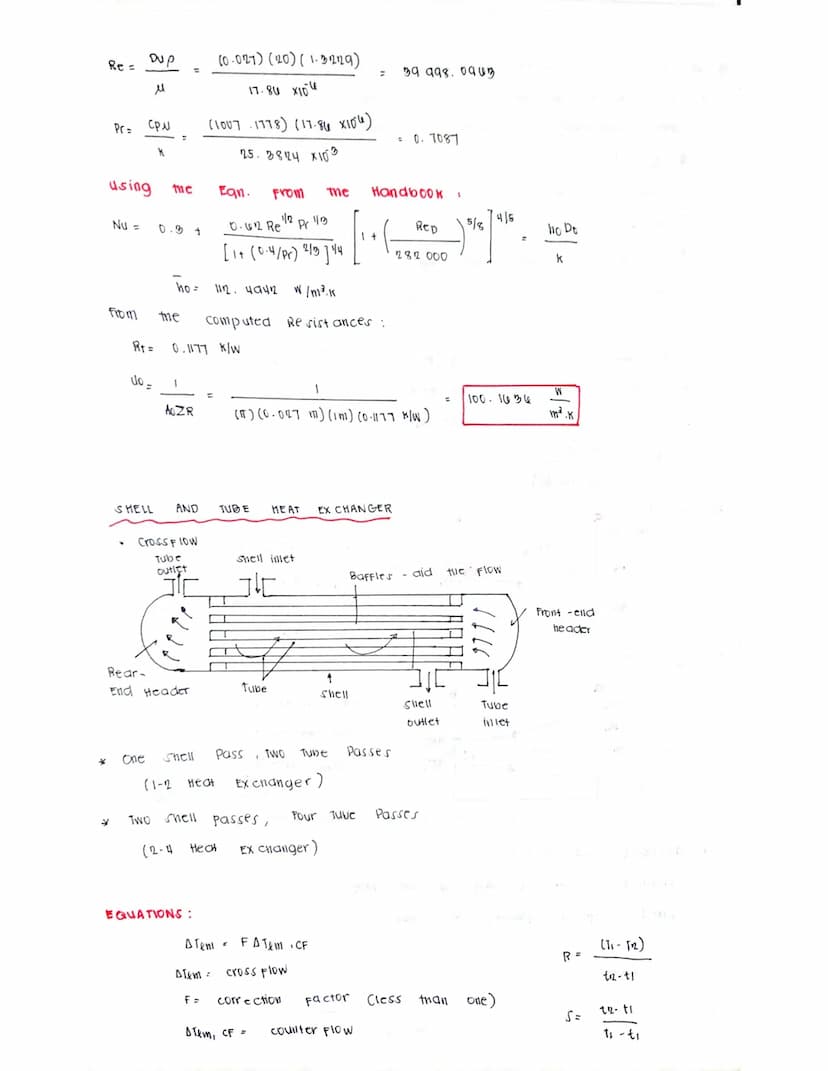 Re = Dυρ / μ = (0.027)(20)(1.3229) / 17.86 x10⁻⁶ = 39 998.0963
Pr = Cpμ / k = (1007.1778)(17.86 x10⁻⁶) / 25.3824 x10⁻³ = 0.7087
using the Eqn. from the Handbook :
Nu = 0.3 + 0.62 Re^1/2 Pr^1/3 / [1+ (0.4/Pr)^2/3]^1/4 [1 + (ReD / 282 000)^5/8]^4/5 = ho Do / k
h̄o = 112.4942 W/m².K
from the computed Resistances :
Rt = 0.1177 K/W
Uo = 1 / AoΣR = 1 / (π)(0.027 m)(1m)(0.1177 K/W) = 100.1636 W / m².K
SHELL AND TUBE HEAT EXCHANGER
• CROSSFLOW
Tube outlet
shell inlet
Baffles - aid the flow
Front-end header
Rear-End Header
Tube
shell
shell outlet
Tube inlet
* One shell Pass, Two Tube Passes
(1-2 Heat Exchanger)
* Two shell passes, Four Tube Passes
(2-4 Heat Exchanger)
EQUATIONS :
ΔTlm = F ΔTlm,CF
R = (T₁ - T₂) / t₂ - t₁
ΔTlm = cross flow
F = correction factor (less than one)
S = t₂ - t₁ / T₁ - t₁
ΔTlm, CF = counter flow